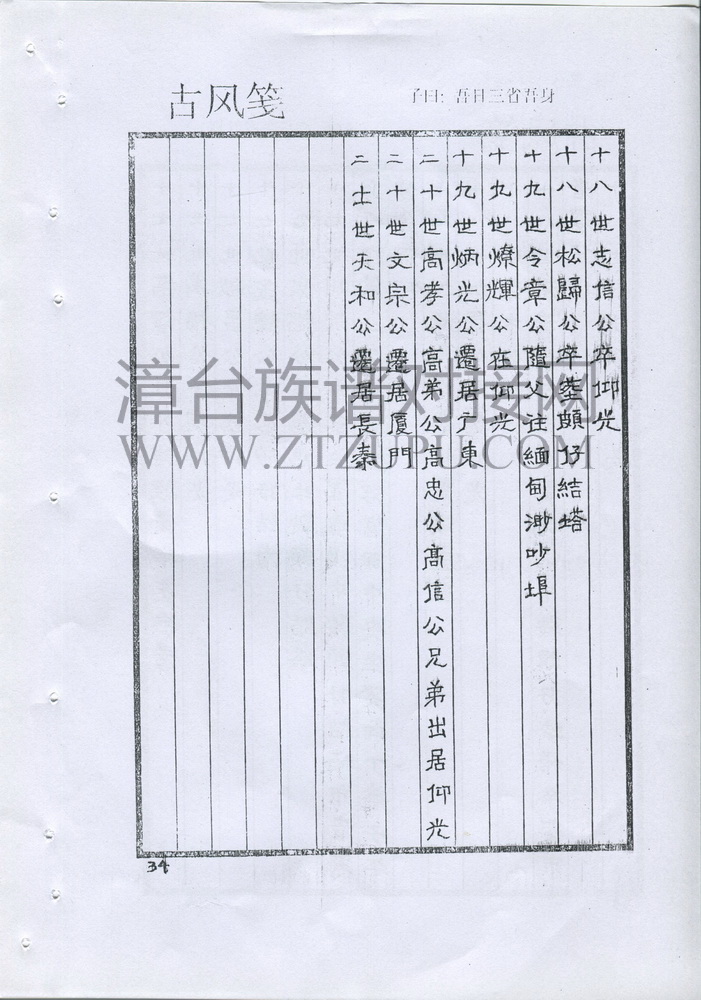 古风笺
子曰：吾日三省吾身
十八世志信公卒仰光
十八世松歸公卒葬頗仔結塔
十九世令章公隨父往緬甸渺吵埠
十九世燎輝公在仰光
十九世炳光公遷居广東
二十世高孝公高弟公高忠公高信公兄弟出居仰光
二十世文宗公遷居厦門
二十一世天和公遷居長泰
漳台族谱对接网
WWW.ZTZUPU.COM
34